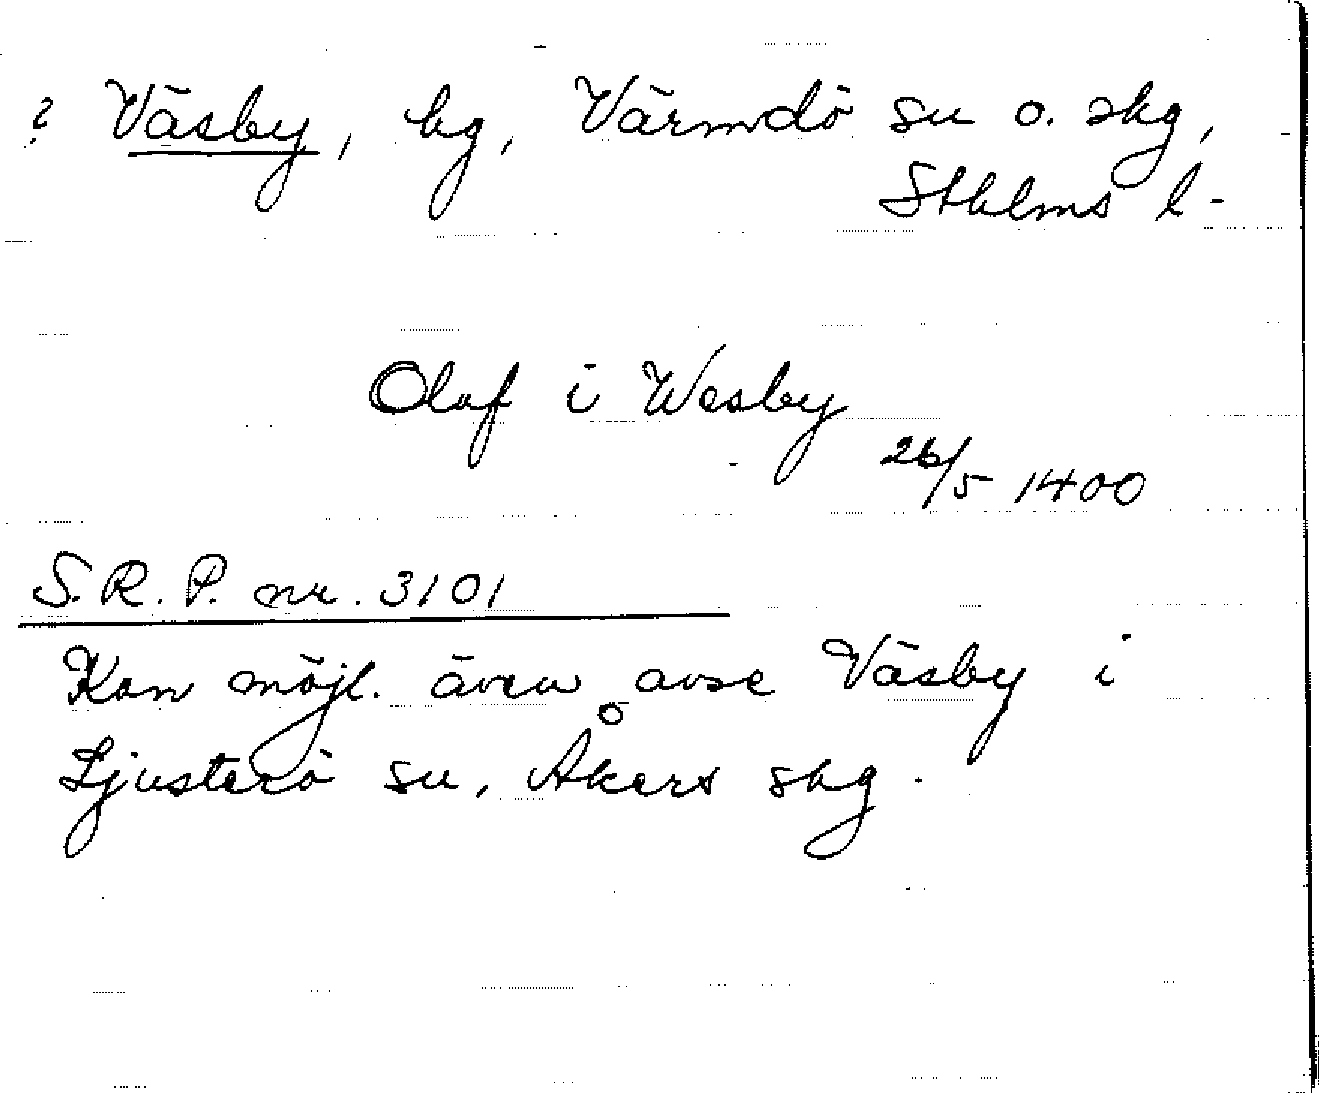 ? Väsby, hg, Värmdö sn o. skg,
Sthlms l-
Olaf i Wesby
26/5 1400
S.R.P. nr. 3101
Kan möjl. även avse Väsby i
Ljusterö sn, Åkers skg.